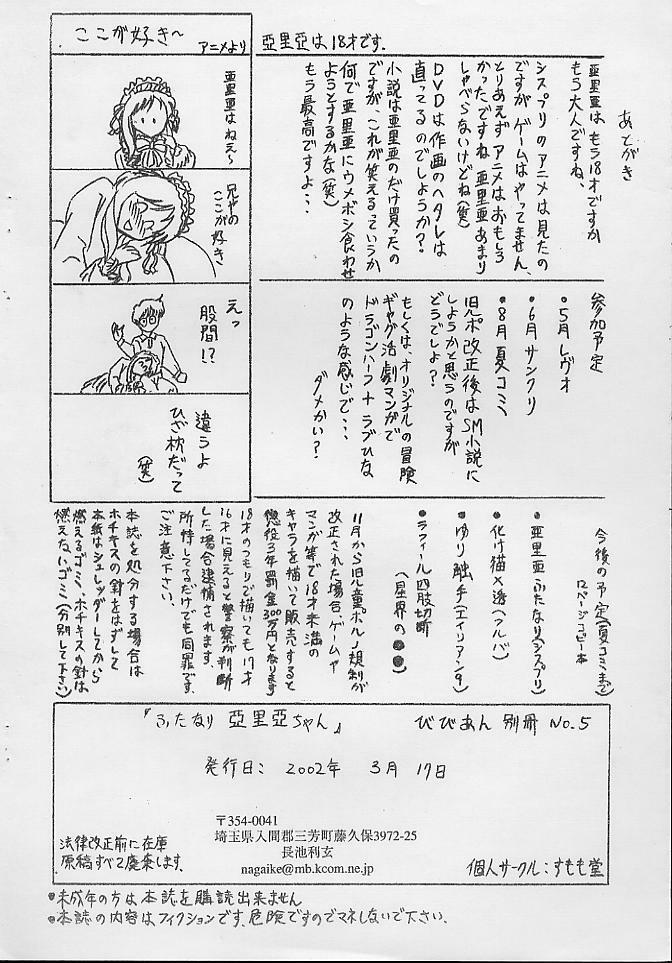 ここが好き〜
アニメより
亜里亜はねえ〜
兄やの
ここが好き、
えっ
股間!?
違うよ
ひざ枕だって
(笑)
亜里亜は18才です.
あとがき
亜里亜は、もう18才ですか
もう大人ですね、
シスプリのアニメは見たの
ですが、ゲームはやってません、
とりあえずアニメはおもしろ
かったですね 亜里亜あまり
しゃべらないけどね(笑)
DVDは作画のヘタレは
直ってるのでしょうか?
小説は亜里亜のだけ買ったの
ですが、これが笑えるっていうか
何で亜里亜にウメボシ食わせ
ようとするかな(笑)
もう最高ですよ・・
参加予定
•5月レヴォ
•6月サンクリ
•8月夏コミ
児ポ改正後はSM小説に
しようかと思うのですが
どうでしょ?
もしくは、オリジナルの冒険
ギャグ活劇マンガで
ドラゴンハーフ+ラブひな
のような感じで・・・
ダメかい?
今後の予定(夏コミまで)
12ページコピー本
•亜里亜ふたなり(シスプリ)
•化け猫×透(フルバ)
•ゆり触手(エイリアン9)
•ラフィール四肢切断
(星界の●●)
11月から旧児童ポルノ規制が
改正された場合、ゲームや
マンガ等で18才未満の
キャラを描いて販売すると
懲役3年罰金300万円となります
18才のつもりで描いても17才
16才に見えると警察が判断
した場合逮捕されます.
所持してるだけでも同罪です.
ご注意下さい、
本誌を処分する場合は
ホチキスの針をはずして
本紙はシュレッダーしてから
燃えるゴミ、ホチキスの針は
燃えないゴミ(分別して下さい)
『ふたなり 亜里亜ちゃん』
びびあん 別冊 No.5
発行日: 2002年 3月 17日
〒354-0041
埼玉県入間郡三芳町藤久保3972-25
長池利玄
nagaike@mb.kcom.ne.jp
法律改正前に在庫
原稿すべて廃棄します.
個人サークル:すもも堂
•未成年の方は本誌を購読出来ません
•本誌の内容はフィクションです、危険ですのでマネしないで下さい.